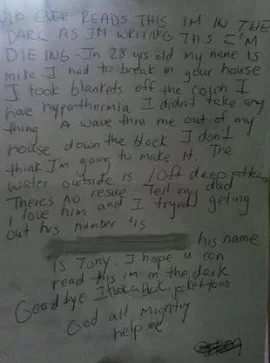 WHO EVER READS THIS IM IN THE
DARK AS IM WRITING THIS I'M
DIEING - Im 28 yrs old my name is
mike I had to break in your house
I took blankets off the couch I
have hyperthermia I didnt take any
thing A wave thru me out of my
house down the block I dont
think I'm going to make it. The
water outside is 10ft deep at
Theres no resue. Tell my dad
I love him and I tryed geting
out his number is
his name
is Tony. I hope u can
read this im in the dark
Good bye I took a black
God all mighty
help me